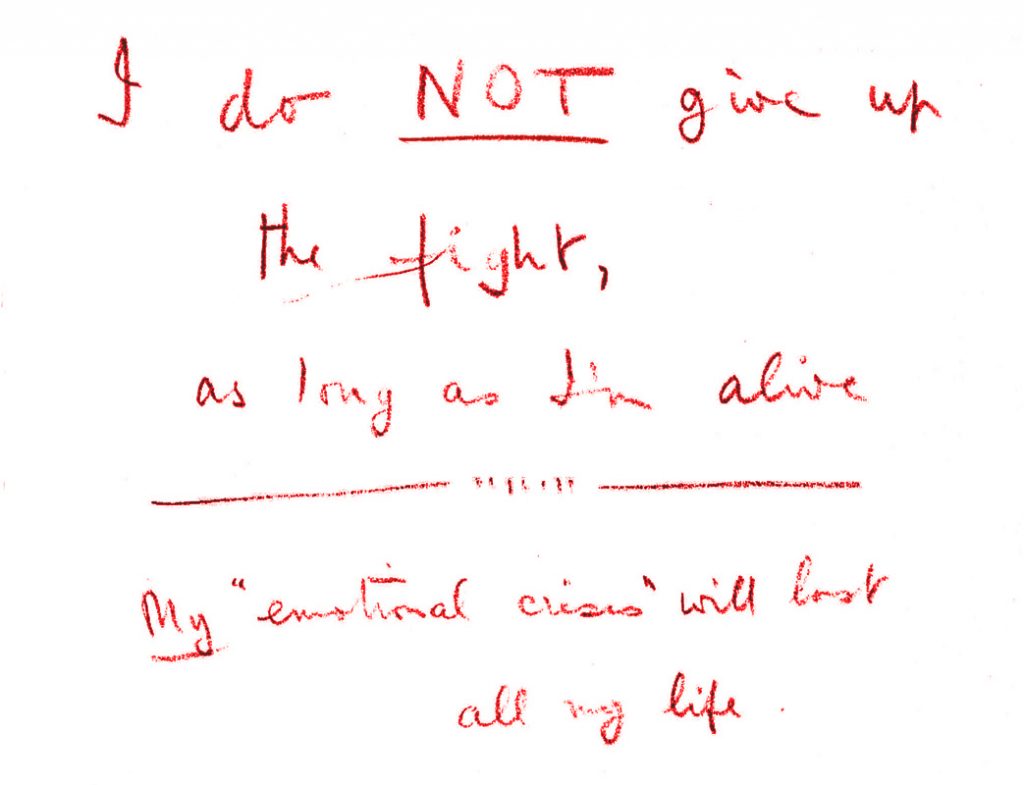 I do NOT give up
the fight,
as long as I'm alive
My "emotional crisis" will last
all my life.